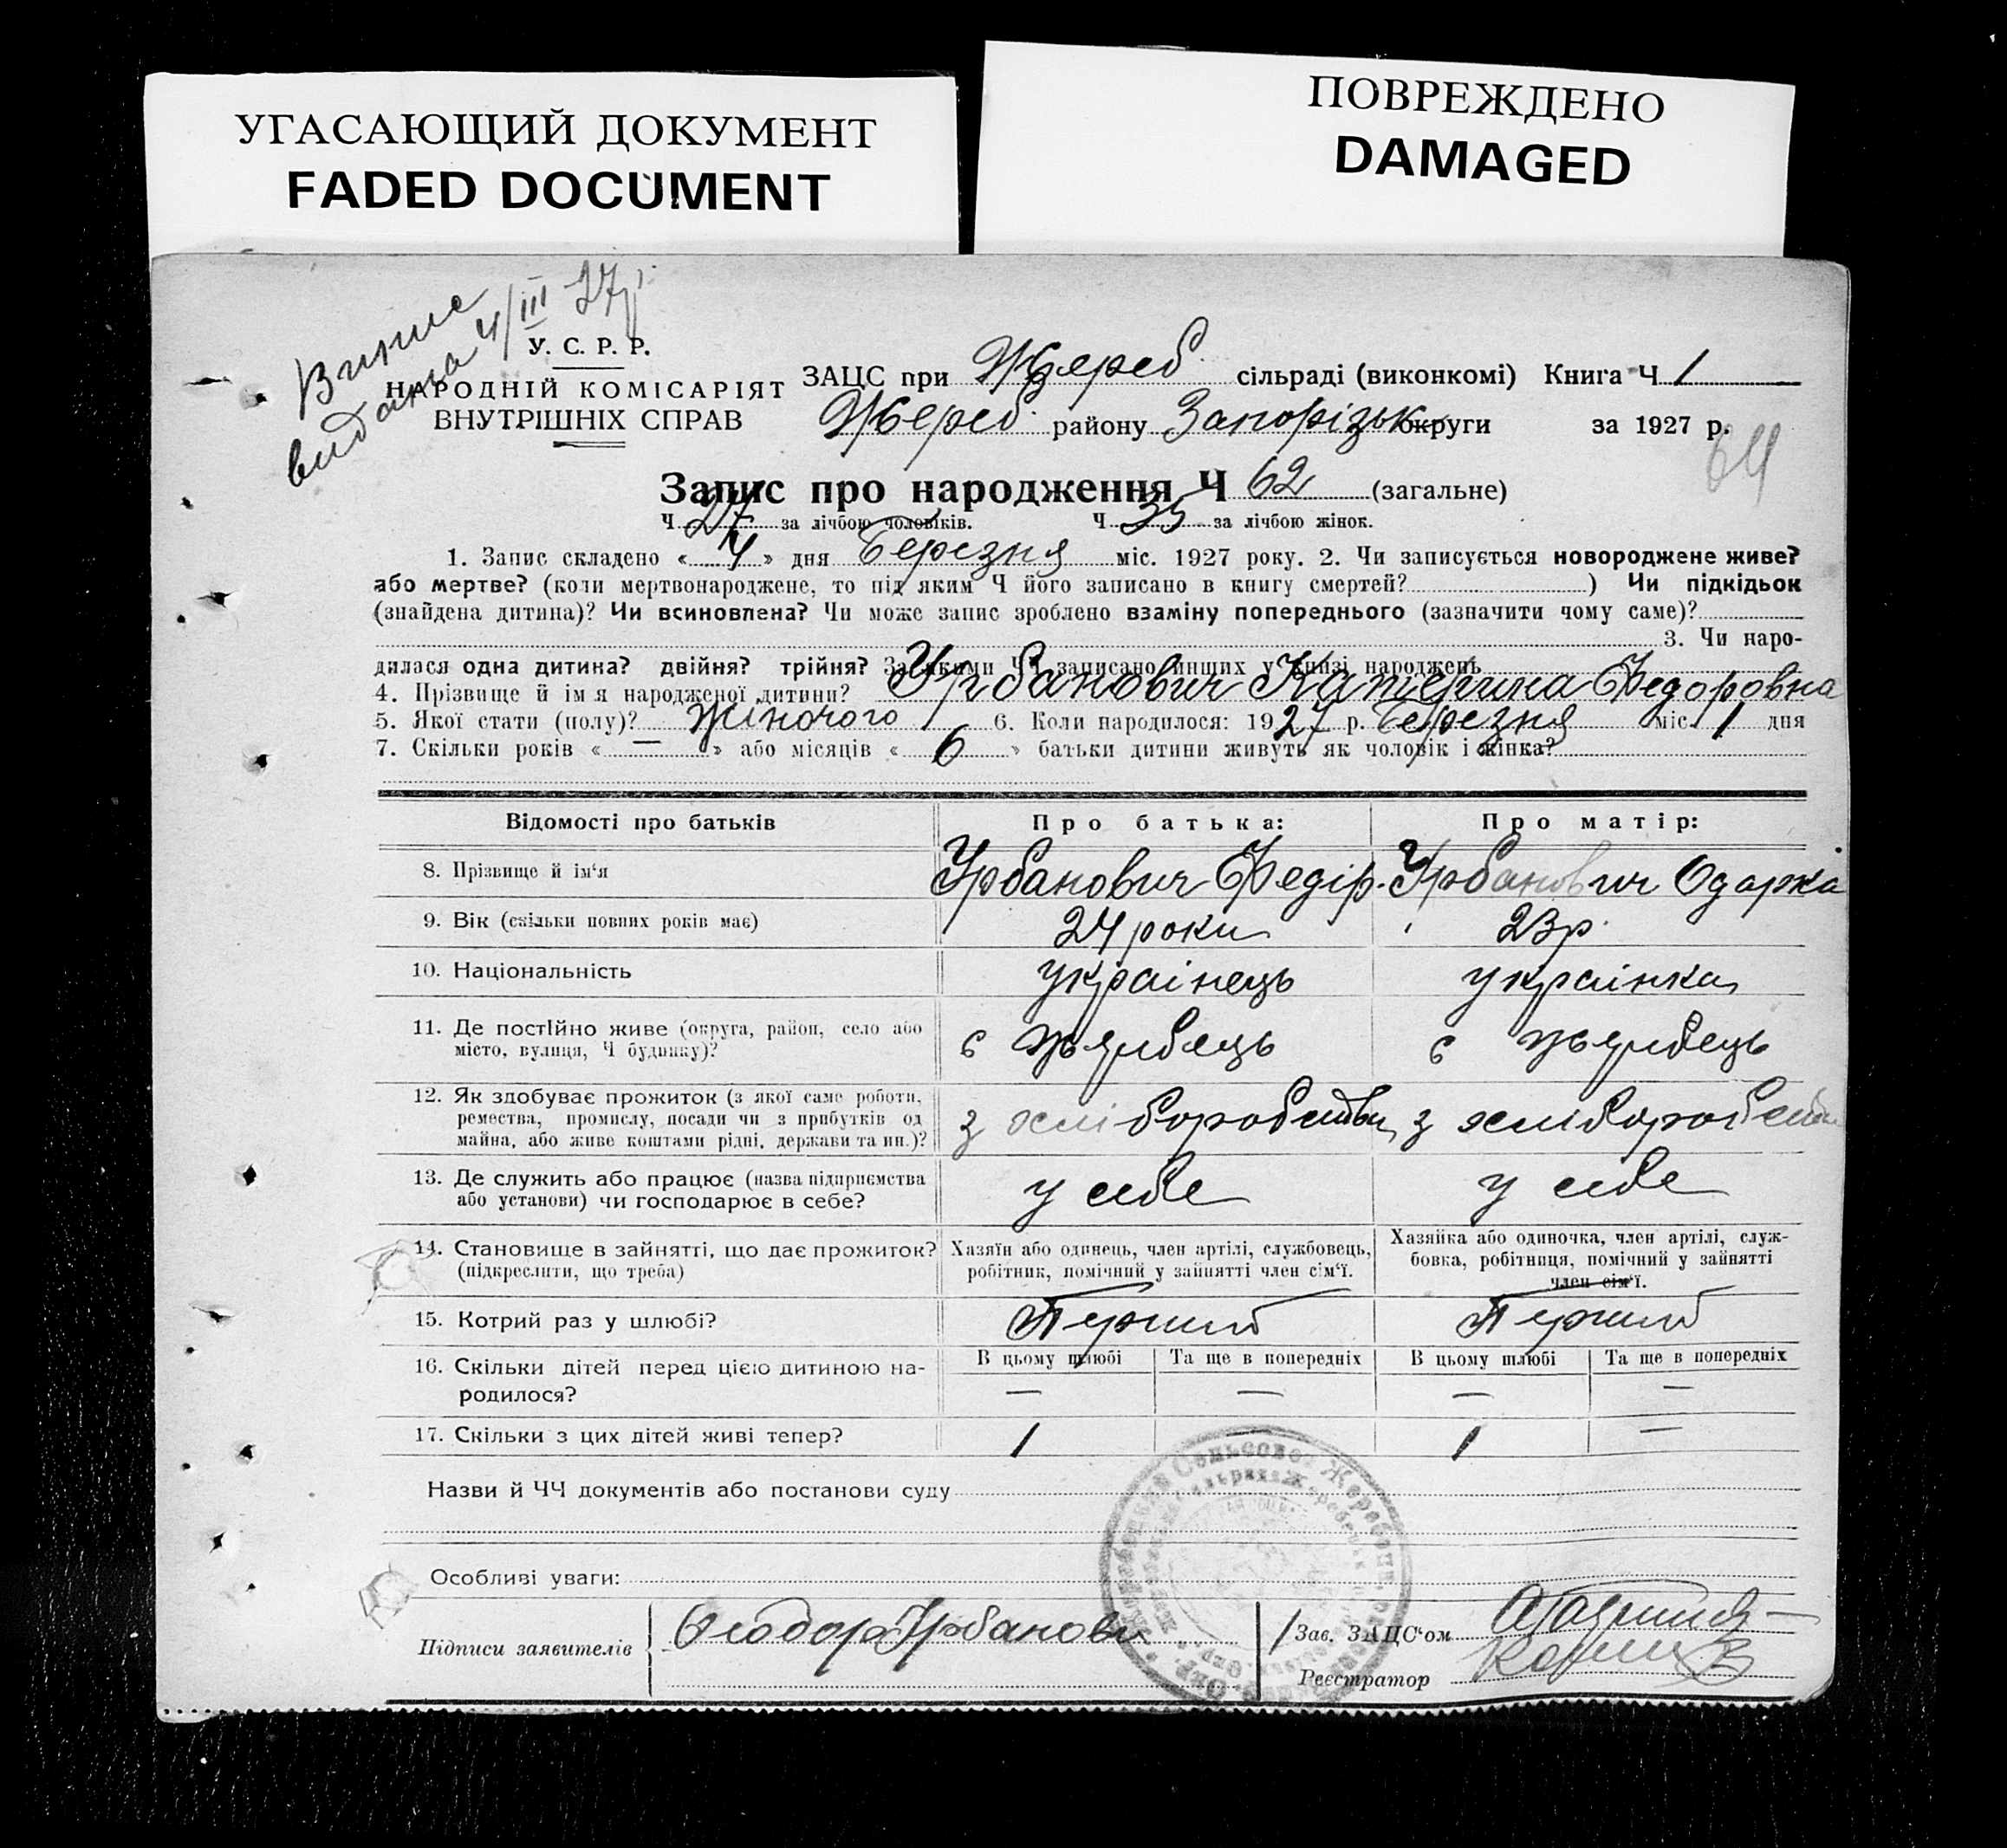 УГАСАЮЩИЙ ДОКУМЕНТ
FADED DOCUMENT
ПОВРЕЖДЕНО
DAMAGED
Випис
видано 4/III 27 р.
У. С. Р. Р.
НАРОДНІЙ КОМІСАРІЯТ
ВНУТРІШНІХ СПРАВ
ЗАЦС при Жереб. сільраді (виконкомі) Книга Ч 1
Жереб. району Запорізьк округи за 1927 р.
64
Запис про народження Ч 62 (загальне)
Ч 27 за лічбою чоловіків. Ч 35 за лічбою жінок.
1. Запис складено « 4 » дня Березня міс. 1927 року. 2. Чи записується новороджене живе?
або мертве? (коли мертвонароджене, то під яким Ч його записано в книгу смертей? ) Чи підкідьок
(знайдена дитина)? Чи всиновлена? Чи може запис зроблено взаміну попереднього (зазначити чому саме)?
3. Чи наро-
дилася одна дитина? двійня? трійня? За якими ЧЧ записано инших у книзі народжень
4. Прізвище й ім я народженої дитини? Урбанович Катерина Федоровна
5. Якої стати (полу)? жіночого 6. Коли народилося: 1927 р. Березня міс. 1 дня
7. Скільки років « — » або місяців « 6 » батьки дитини живуть як чоловік і жінка?
Відомості про батьків Про батька: Про матір:
8. Прізвище й ім'я Урбанович Федір. Урбанович Одарка
9. Вік (скільки повних років має) 24 роки 23 р.
10. Національність украінець украінка
11. Де постійно живе (округа, район, село або
місто, вулиця, Ч будинку)? с Жеребець с Жеребець
12. Як здобуває прожиток (з якої саме роботи,
ремества, промислу, посади чи з прибутків од
майна, або живе коштами рідні, держави та ин.)? з хліборобства з хліборобства
13. Де служить або працює (назва підприємства
або установи) чи господарює в себе? у себе у себе
14. Становище в зайнятті, що дає прожиток?
(підкреслити, що треба)
Хазяїн або одинець, член артілі, службовець,
робітник, помічний у зайнятті член сім'ї.
Хазяйка або одиночка, член артілі, служ-
бовка, робітниця, помічний у зайнятті
член сім'ї.
15. Котрий раз у шлюбі? Перший Перший
16. Скільки дітей перед цією дитиною на-
родилося?
В цьому шлюбі Та ще в попередніх В цьому шлюбі Та ще в попередніх
— — — —
17. Скільки з цих дітей живі тепер? 1 1 —
Назви й ЧЧ документів або постанови суду
Особливі уваги:
Підписи заявителів Феодор Урбанови
Зав. ЗАЦС'ом
Реєстратор